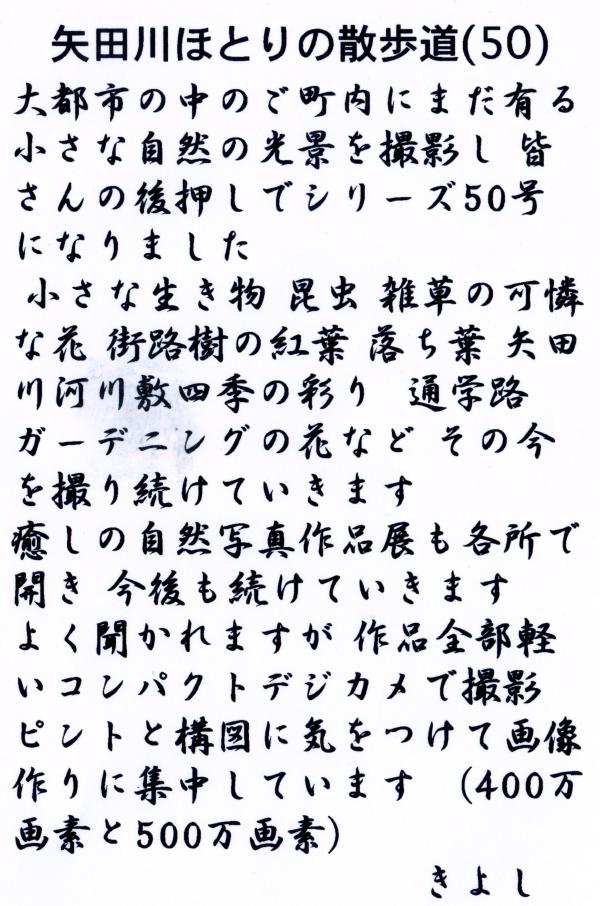 矢田川ほとりの散歩道(50)
大都市の中のご町内にまだ有る
小さな自然の光景を撮影し 皆
さんの後押しでシリーズ50号
になりました
小さな生き物 昆虫 雑草の可憐
な花 街路樹の紅葉 落ち葉 矢田
川河川敷四季の彩り 通学路
ガーデニングの花など その今
を撮り続けていきます
癒しの自然写真作品展も各所で
開き 今後も続けていきます
よく聞かれますが 作品全部軽
いコンパクトデジカメで撮影
ピントと構図に気をつけて画像
作りに集中しています (400万
画素と500万画素)
きよし